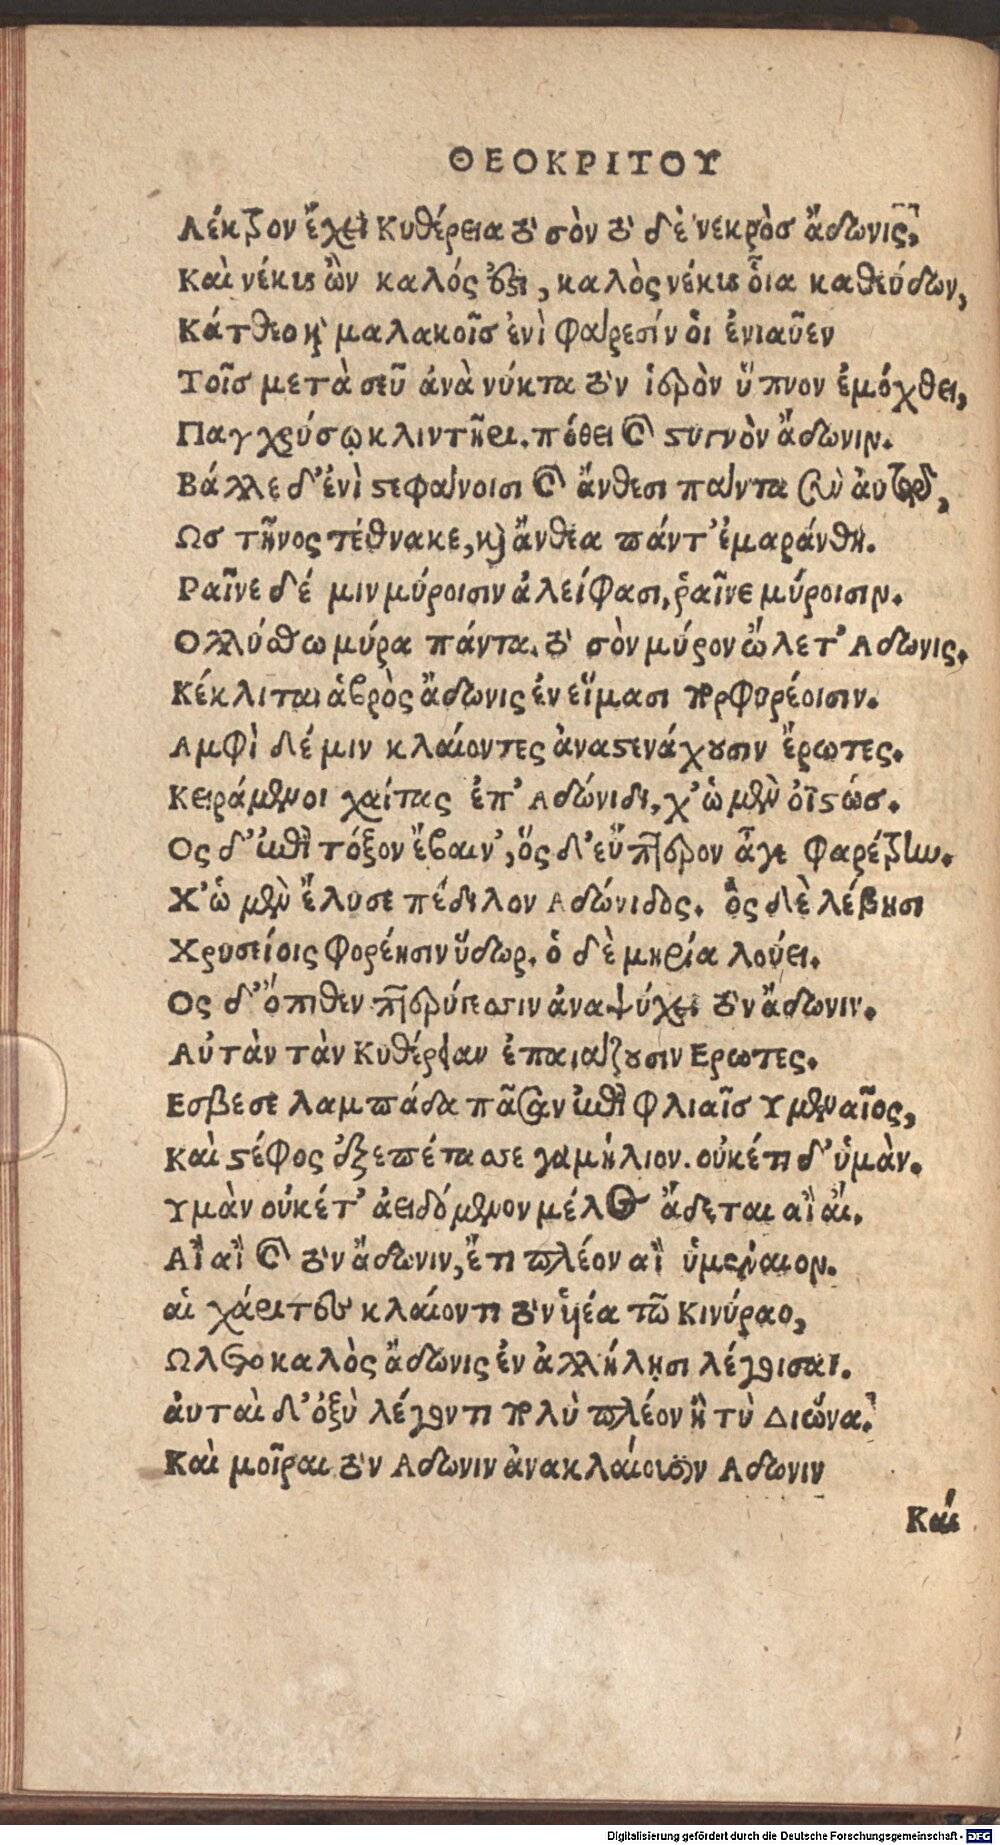 ΘΕΟΚΡΙΤΟΥ
Λέκτρον ἔχει Κυθέρεια τὸ σὸν τὸ δὲ νεκρὸσ ἄδωνις,
Καὶ νέκυς ὢν καλός ὅστι, καλὸς νέκυς οἷα καθεύδων,
Κάτθεο καὶ μαλακοῖσ ἐνὶ φαίρεσίν ὁι ἐνιαῦεν
Τοῖσ μετὰ σεῦ ἀνὰ νύκτα τὸν ἱερὸν ὕπνον ἐμόχθει,
Παγχρύσῳ κλιντῆρι. πόθει καὶ στυγνὸν ἄδωνιν.
Βάλλε δ’ἐνὶ στεφαίνοισι καὶ ἄνθεσι παίντα σὺν ἀυτῷ,
Ωσ τῆνος τέθνακε, καὶ ἄνθεα πάντ’ἐμαράνθη.
Ραῖνε δέ μιν μύροισιν ἀλείφασι, ῥαῖνε μύροισιν.
Ολλύσθω μύρα πάντα. τὸ σὸν μύρον ὤλετ’ Αδωνις.
Κέκλιται ἁβρὸς ἄδωνις ἐν εἵμασι πορφυρέοισιν.
Αμφὶ δέ μιν κλαίοντες ἀναστενάχουσιν ἔρωτες.
Κειράμενοι χαίτας ἐπ’ Αδώνιδι, χ’ὡ μὲν ὀϊστώσ.
Ος δ’ἐπὶ τόξον ἔβαιν’, ὅς δ’εὔπτερον ἆγε φαρέτρην.
Χ’ὡ μὲν ἔλυσε πέδιλον Αδώνιδος. ὃς δὲ λέβησι
Χρυσείοις φορέησιν ὕδωρ. ὁ δὲ μηρία λούει.
Ος δ’ὄπιθεν πτερύγεσσιν ἀναψύχει τὸν ἄδωνιν.
Αὐτὰν τὰν Κυθέρειαν ἐπαιαίζουσιν Ερωτες.
Εσβεσε λαμπάδα πᾶσαν ἐπὶ φλιαῖσ Υμεναῖος,
Καὶ στέφος ἐξεπέτασσε γαμήλιον. οὐκέτι δ’ὑμὰν.
Υμὰν οὐκέτ’ ἀειδόμενον μέλος ἄδεται αἲ αἴ.
Αἲ αἲ καὶ τὸν ἄδωνιν, ἔτι πλέον αἲ ὑμεναιον.
αἱ χάριτες κλαίοντι τὸν ὑέα τῶ Κινύραο,
Ωλετο καλὸς ἄδωνις ἐν ἀλλήλησι λέγοισαι.
ἀυταὶ δ’ὀξὺ λέγοντι πολὺ πλέον ἢ τὺ Διώνα.
Καὶ μοῖραι τὸν Αδωνιν ἀνακλαίοισιν Αδωνιν
Καί
Digitalisierung gefördert durch die Deutsche Forschungsgemeinschaft - DFG